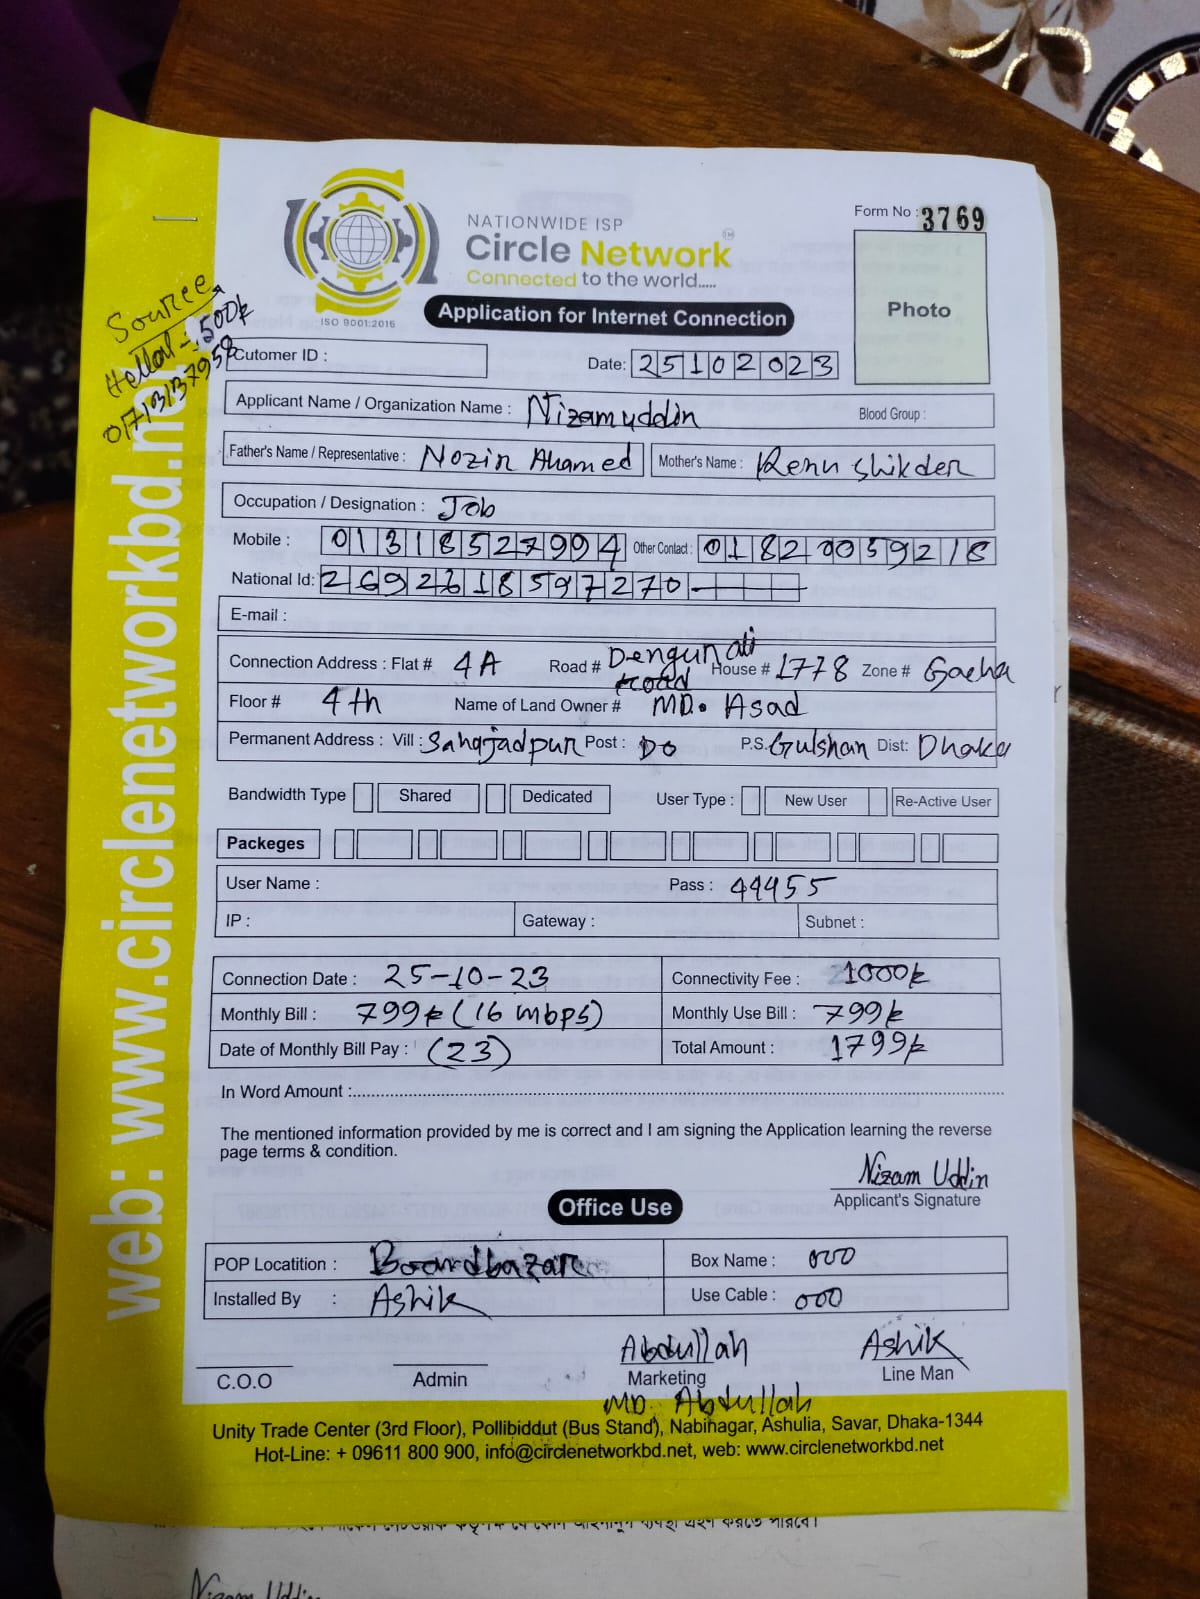 NATIONWIDE ISP
Circle Network TM
Connected to the world.....
ISO 9001:2015
Application for Internet Connection
Form No : 3769
Photo
Source
Hellal - 500৳
web: www.circlenetworkbd.net
Cutomer ID :
Date: 25102023
Applicant Name / Organization Name : Nizamuddin Blood Group :
Father's Name / Representative : Nozir Ahamed Mother's Name : Renu Shikder
Occupation / Designation : Job
Mobile : 01318527994 Other Contact : 01820059218
National Id: 2692618597270
E-mail :
Connection Address : Flat # 4A Road # Dengun ali road House # 1778 Zone # Gacha
Floor # 4th Name of Land Owner # MD. Asad
Permanent Address : Vill : Sahajadpur Post : DO P.S. Gulshan Dist: Dhaka
Bandwidth Type Shared Dedicated User Type : New User Re-Active User
Packeges
User Name : Pass : 44455
IP : Gateway : Subnet :
Connection Date : 25-10-23 Connectivity Fee : 1000৳
Monthly Bill : 799৳ (16 mbps) Monthly Use Bill : 799৳
Date of Monthly Bill Pay : (23) Total Amount : 1799৳
In Word Amount :
The mentioned information provided by me is correct and I am signing the Application learning the reverse
page terms & condition.
Nizam Uddin
Applicant's Signature
Office Use
POP Locatition : Boardbazar Box Name : 000
Installed By : Ashik Use Cable : 000
Abdullah Ashik
C.O.O Admin Marketing Line Man
MD. Abdullah
Unity Trade Center (3rd Floor), Pollibiddut (Bus Stand), Nabinagar, Ashulia, Savar, Dhaka-1344
Hot-Line: + 09611 800 900, info@circlenetworkbd.net, web: www.circlenetworkbd.net
Nizam Uddin